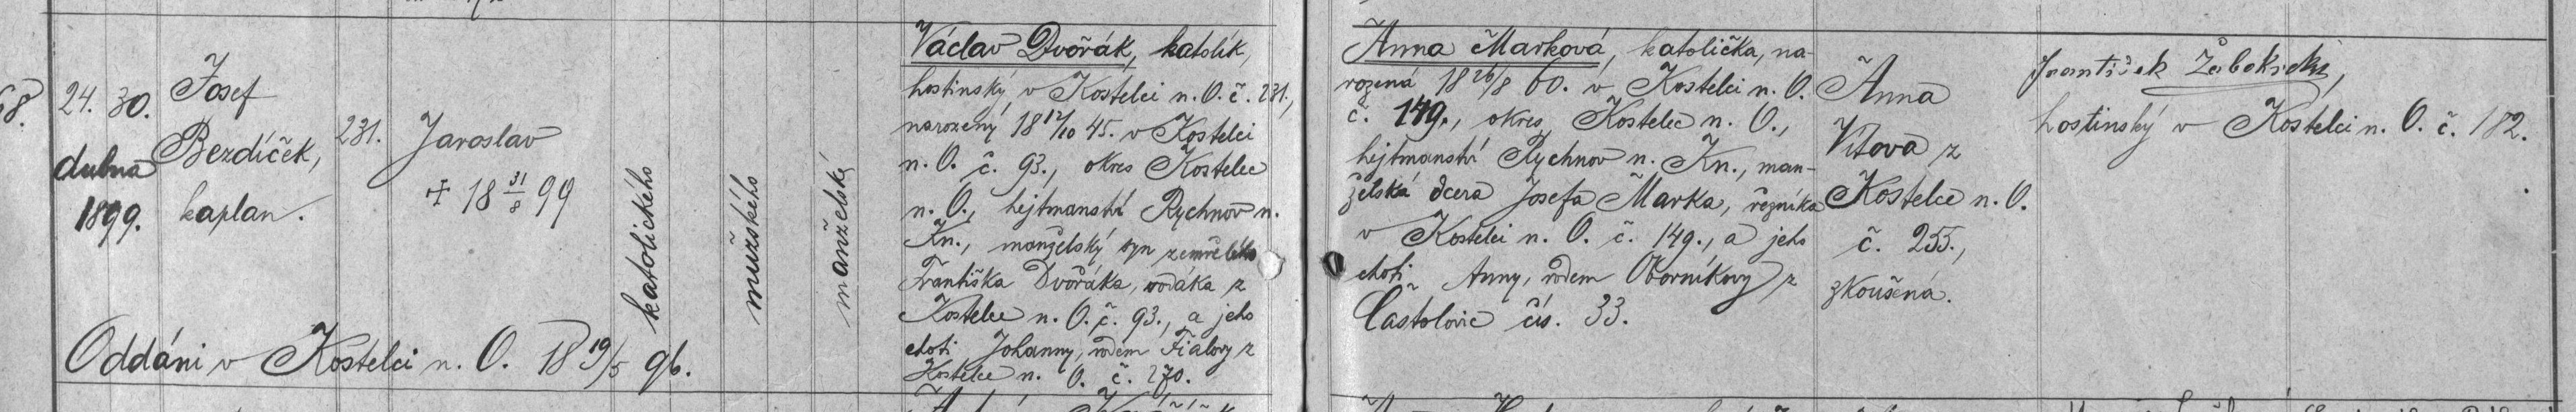 68.
24. 30.
dubna
1899.
Josef
Bezdíček,
kaplan.
231.
Jaroslav
+ 18 31/8 99
katolického
mužského
manželské
Oddáni v Kostelci n. O. 18 19/5 96.
Václav Dvořák, katolík,
hostinský v Kostelci n. O. č. 231.,
narozený 18 12/10 45. v Kostelci
n. O. č. 93., okres Kostelec
n. O., hejtmanství Rychnov n.
Kn., manželský syn zemřelého
Františka Dvořáka, z
Kostelce n. O. č. 93., a jeho
choti Johanny, rodem Fialovy z
Kostelce n. O. č. 270.
Anna Marková, katolička, na-
rozená 18 26/8 60. v Kostelci n. O.
č. 149., okres Kostelec n. O.,
hejtmanství Rychnov n. Kn., man-
želská dcera Josefa Marka, řezníka
v Kostelci n. O. č. 149., a jeho
choti Anny, rodem Oborníkovy z
Častolovic čís. 33.
Anna
Vítova z
Kostelce n. O.
č. 255.,
zkoušená.
František
hostinský v Kostelci n. O. č. 182.